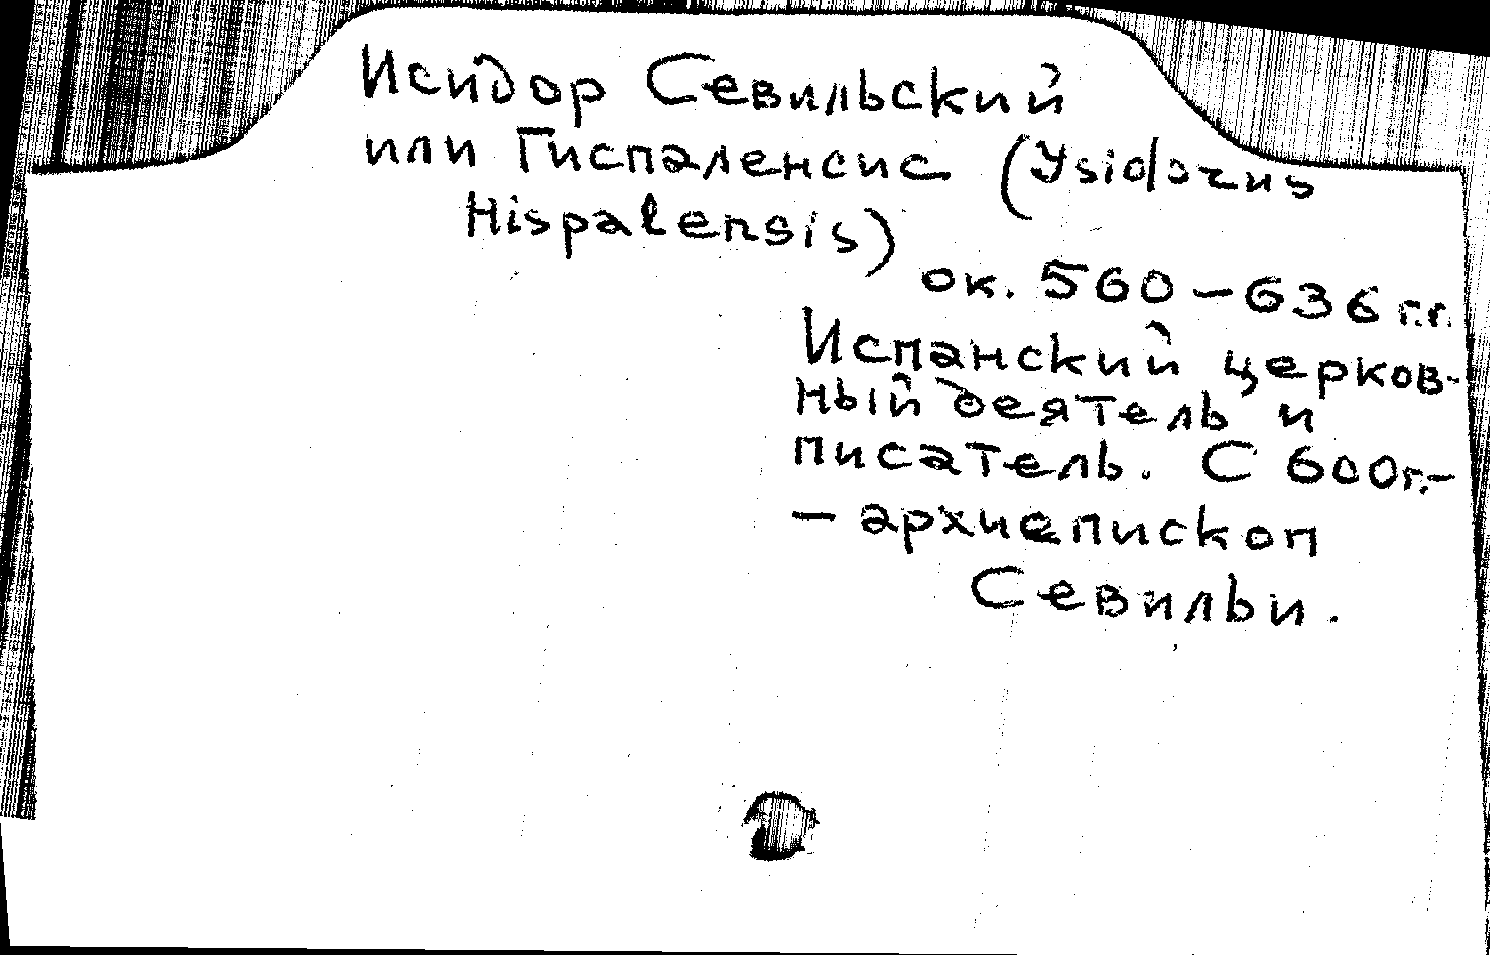 Исидор Севильский
или Гиспаленсис (Ysidorus
Hispalensis)
ок. 560 – 636 г.г.
Испанский церков-
ный деятель и
писатель. С 600г. –
– архиепископ
Севильи.